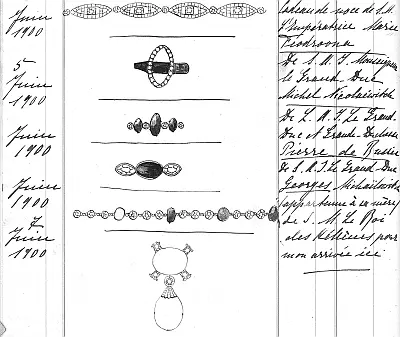 Juin
1900
5
Juin
1900
Juin
1900
Juin
1900
7
Juin
1900
cadeau de noce de S.M.
l'Impératrice Marie
Feodrovna
De S. A. I. Monseigneur
le Grand Duc
Michel Nicolaievitch
De L. A. I. Le Grand
Duc et Grande Duchesse
Pierre de Russie
De S. A. I. Le Grand Duc
Georges Michailovitch
appartenu à sa mère
de S. M. Le Roi
des Hellènes pour
mon arrivée ici